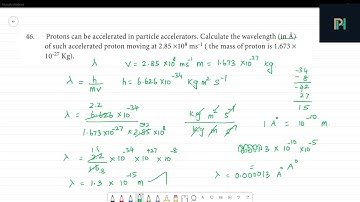 46. Protons can be accelerated in particle accelerators. Calculate the wavelength (in Å)
of such accelerated proton moving at 2.85 ×10⁸ ms⁻¹ ( the mass of proton is 1.673 ×
10⁻²⁷ Kg).
λ V = 2.85 × 10⁸ ms⁻¹ m = 1.673 × 10⁻²⁷ kg
λ = h / mv h = 6.626 × 10⁻³⁴ kg m² s⁻¹
-34
- 8
-42
27
15
2.2
λ = 6.626 × 10⁻³⁴ kg m² s⁻¹
1.673 × 10⁻²⁷ × 2.85 × 10⁸ kg m s⁻¹
1 A° = 10⁻¹⁰ m
λ = 2.2 × 10⁻³⁴ × 10⁺²⁷ × 10⁻⁸
× 10⁻¹⁰ × 10⁻⁵
= A°
λ = 1.3 × 10⁻¹⁵ m
λ = 0.000013 A°